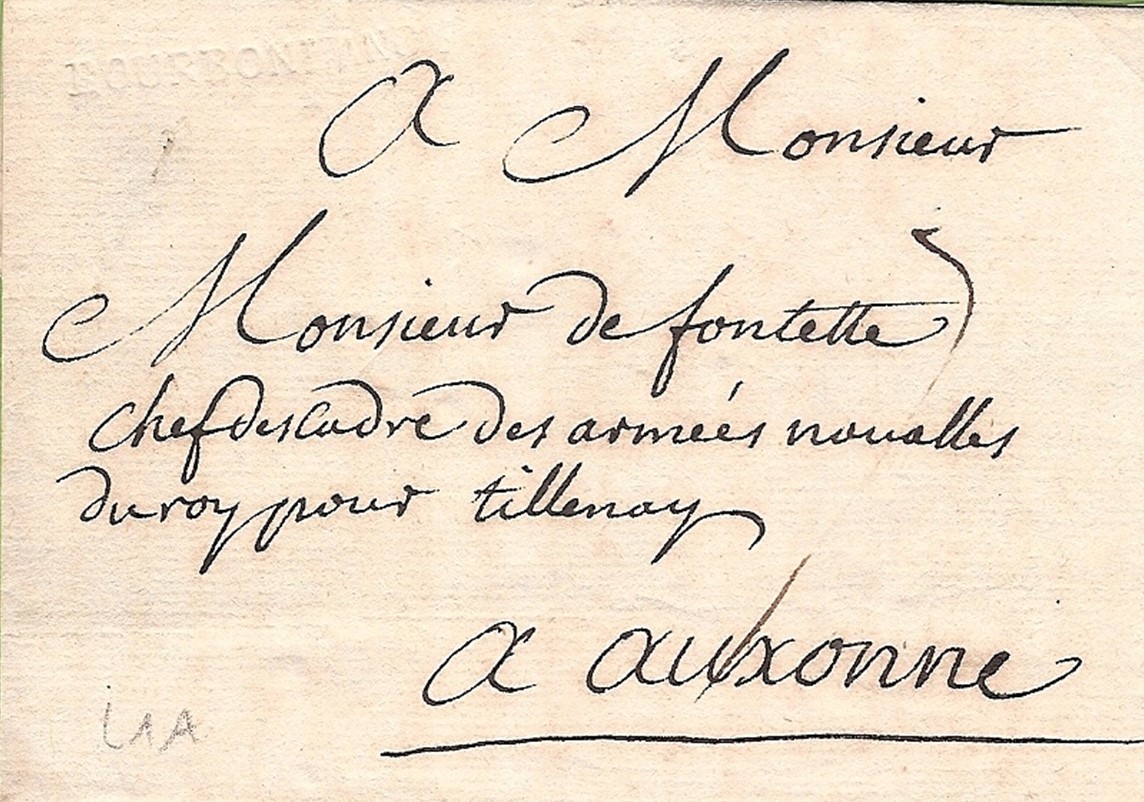 A Monsieur
Monsieur de fontette
chef descadre des armées navalles
du roy pour tillenay
a auxonne
L1A